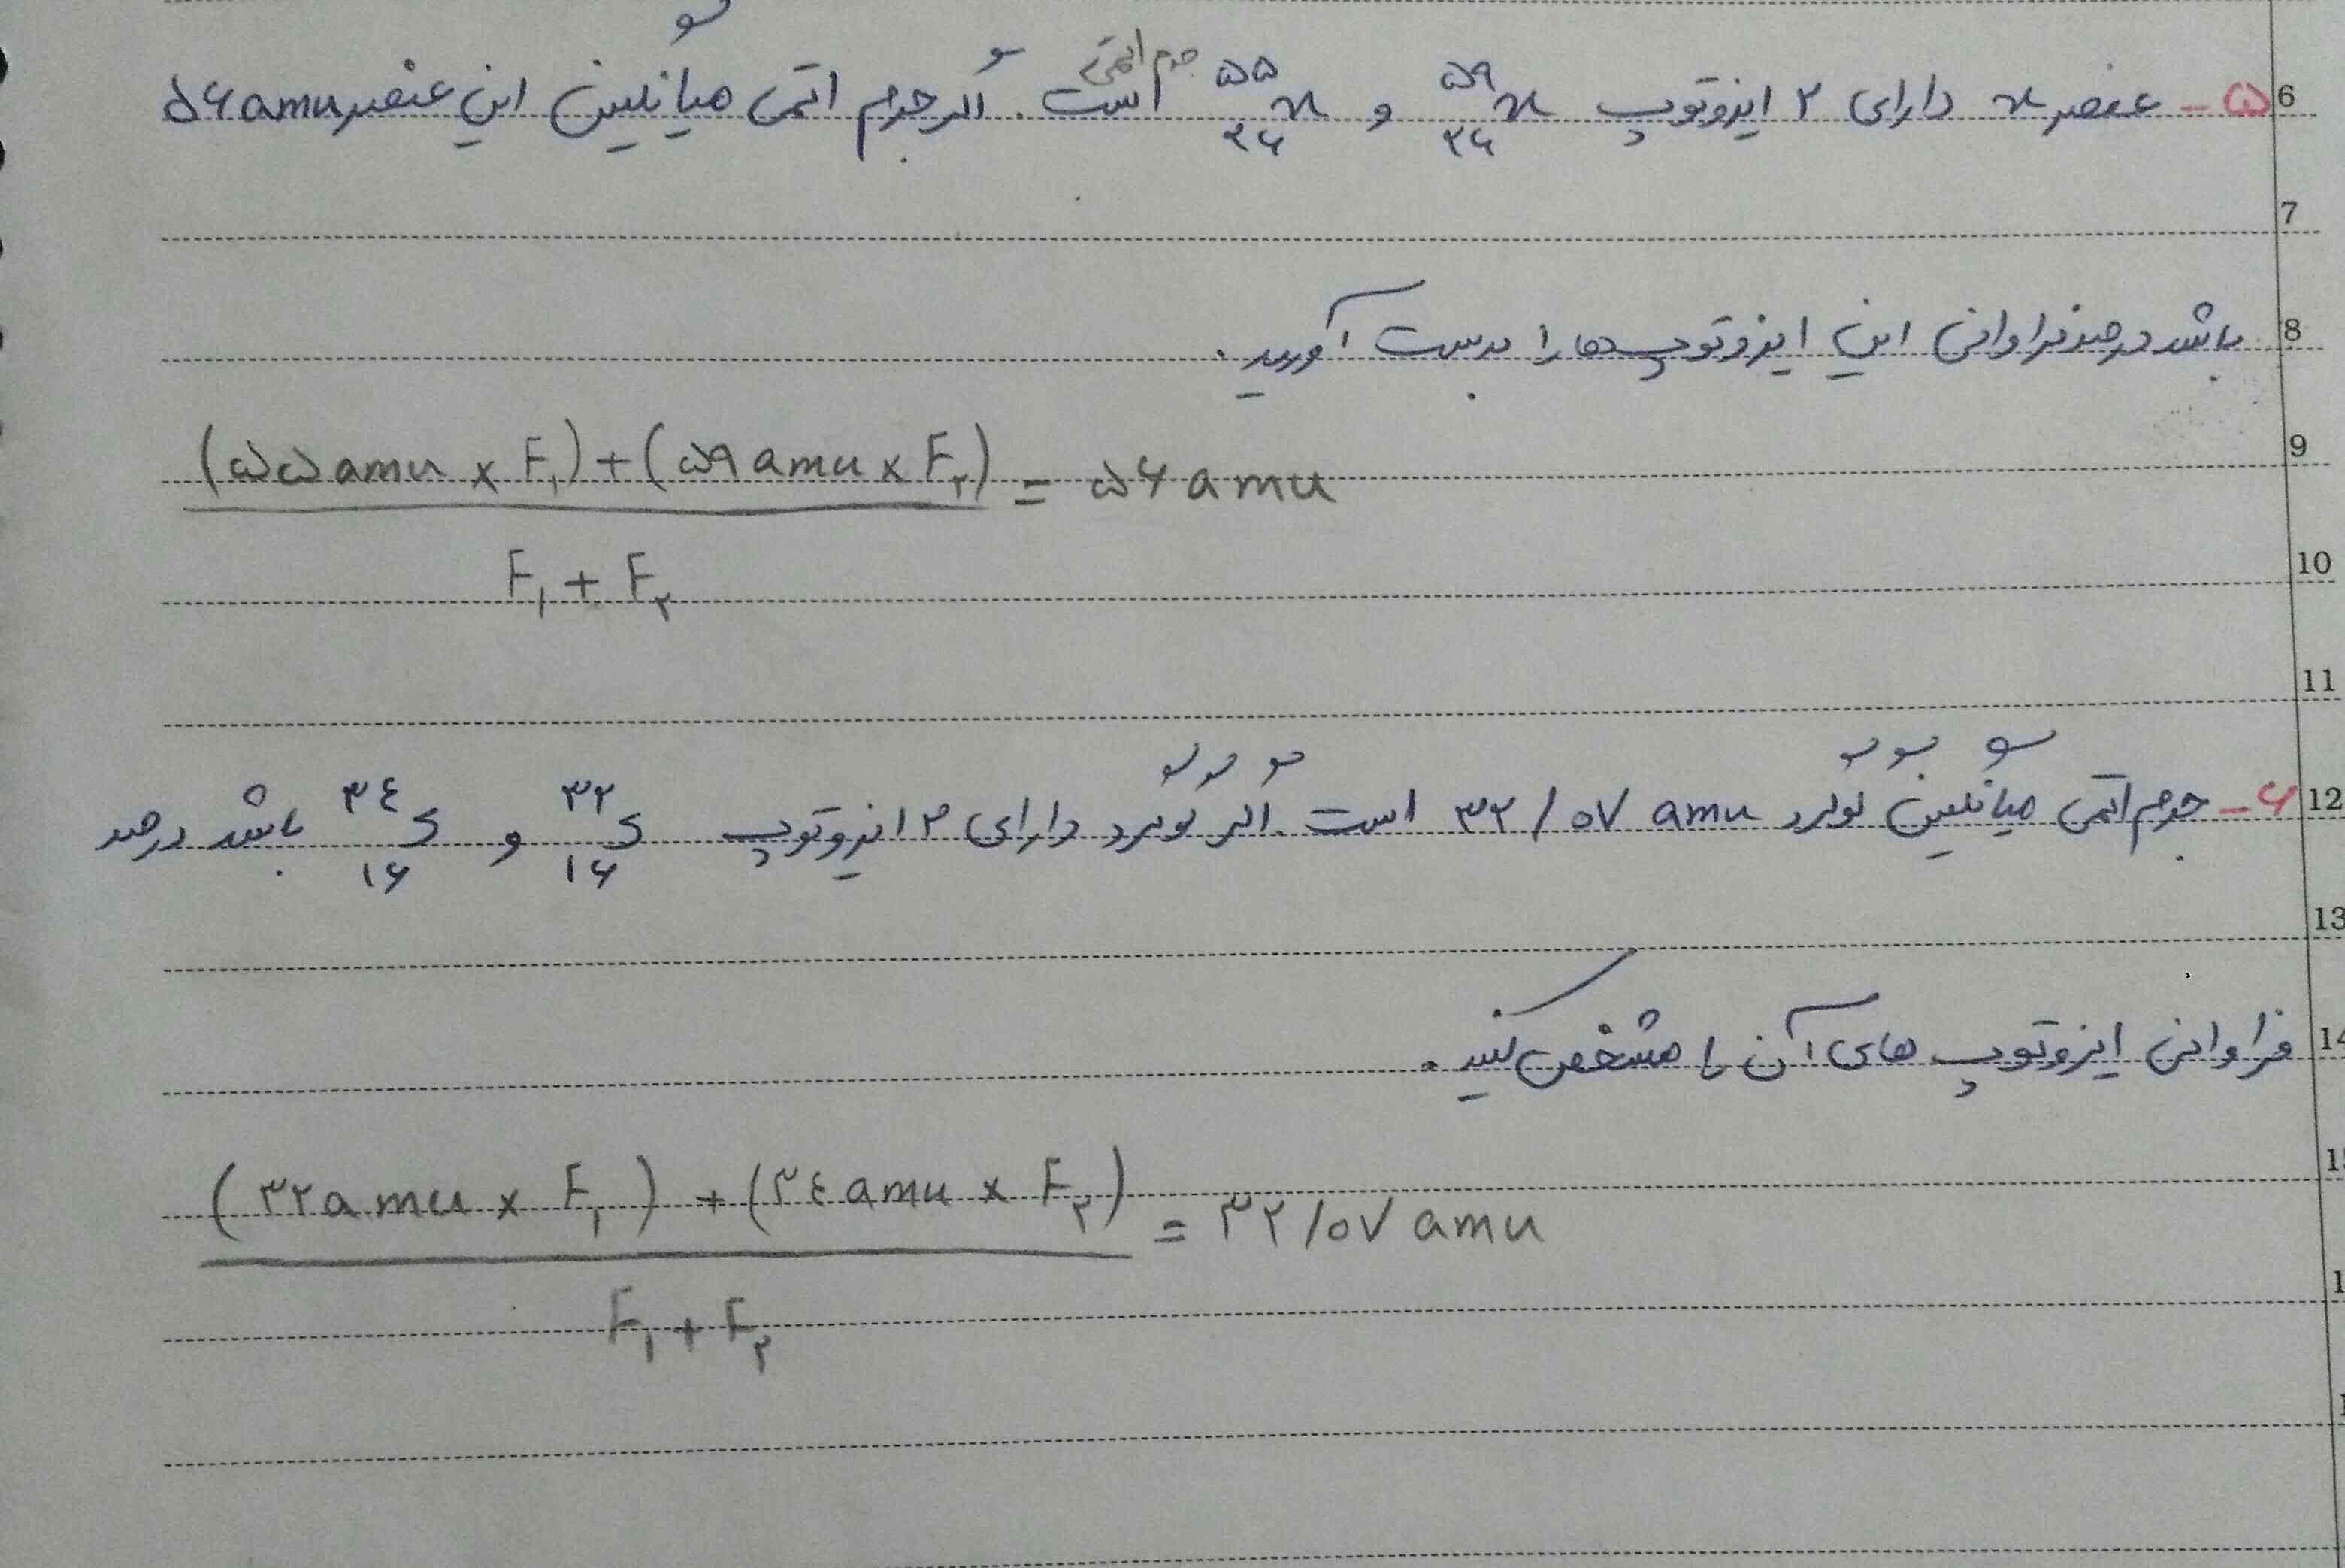 6
جرم اتمی
۵- عنصر x دارای ۲ ایزوتوپ ⁵⁹₂₆x و ⁵⁵₂₆x است. اگر جرم اتمی میانگین این عنصر ۵۶ amu
7
8
باشد درصد فراوانی این ایزوتوپ ها را بدست آورید.
9
(۵۵ amu × F₁) + (۵۹ amu × F₂) = ۵۶ amu
10
F₁ + F₂
11
12
۶- جرم اتمی میانگین گوگرد ۳۲/۰۷ amu است. اگر گوگرد دارای ۲ ایزوتوپ ³²₁₆S و ³⁴₁₆S باشد درصد
13
14
فراوانی ایزوتوپ های آن را مشخص کنید.
(۳۲ amu × F₁) + (۳٤ amu × F₂) = ۳۲/۰۷ amu
F₁ + F₂